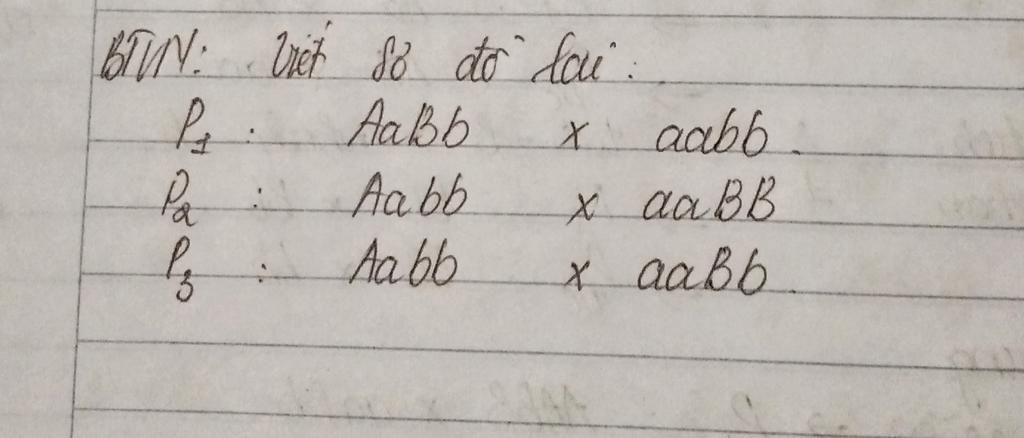 BTVN: Viết sơ đồ lai:
P1: AaBb x aabb.
P2: Aabb x aaBB
P3: Aabb x aaBb.